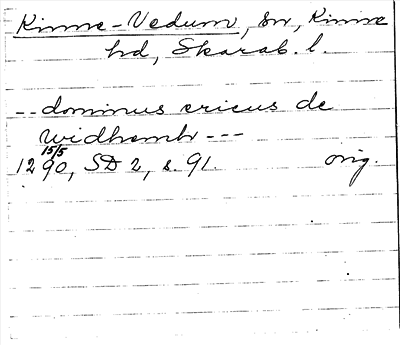 Kinne-Vedum, sn, Kinne
hd, Skarab. l.
-- dominus ericus de
widhemb ---
15/5
1290, SD 2, s. 91. orig.